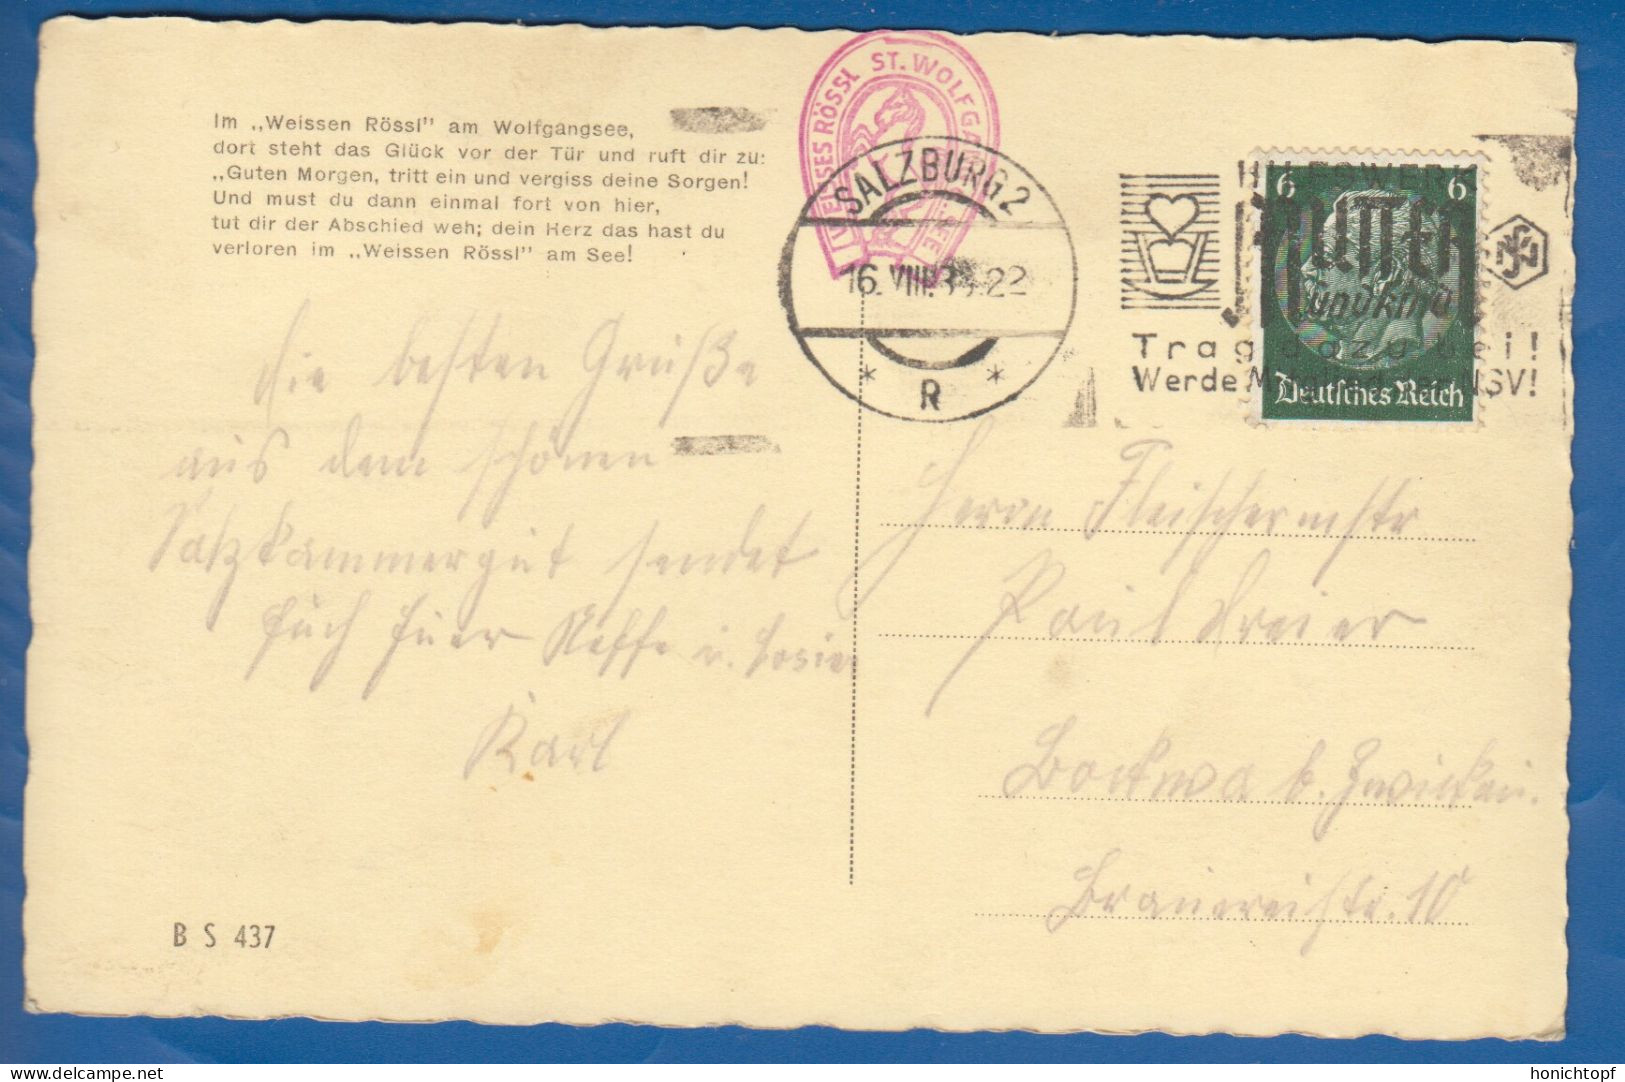 Im „Weissen Rössl" am Wolfgangsee,
dort steht das Glück vor der Tür und ruft dir zu:
„Guten Morgen, tritt ein und vergiss deine Sorgen!
Und must du dann einmal fort von hier,
tut dir der Abschied weh; dein Herz das hast du
verloren im „Weissen Rössl" am See!
WEISSES RÖSSL ST. WOLFGA
SALZBURG 2
16. VIII. 22
* R *
HILFSWERK
MUTTER
und Kind
Trag dazu bei!
Werde M NSV!
6 6
Deutsches Reich
die besten Grüße
aus dem schönen
Salzkammergut sendet
Euch Euer Neffe u.
Karl
Herrn Fleischermstr
Paul Dreier
Bockwa b. Zwickau.
Brauereistr. 10
B S 437
honichtopf